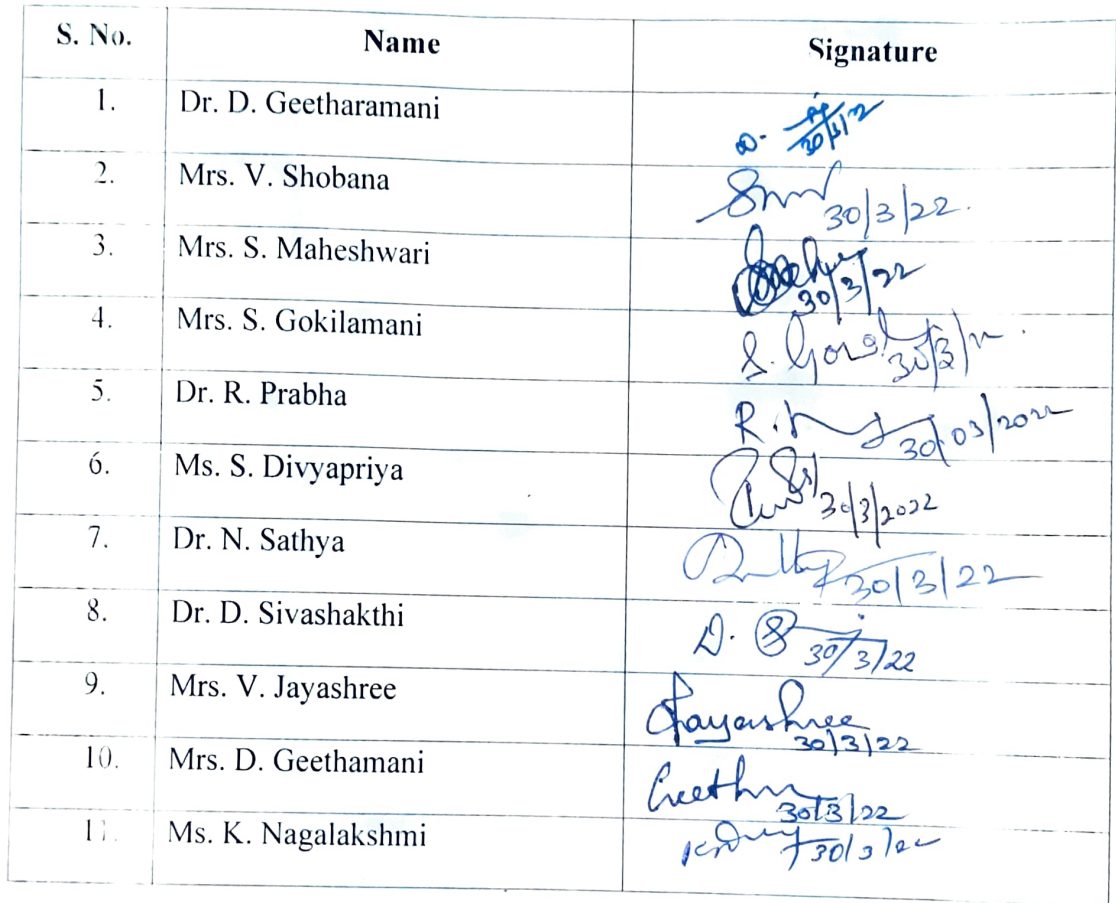 S. No. Name Signature
1. Dr. D. Geetharamani D. 30/3/2
2. Mrs. V. Shobana 30/3/22.
3. Mrs. S. Maheshwari 30/3/22
4. Mrs. S. Gokilamani S. 30/3/22
5. Dr. R. Prabha R. 30/03/2022
6. Ms. S. Divyapriya 30/3/2022
7. Dr. N. Sathya 30/3/22
8. Dr. D. Sivashakthi D. 30/3/22
9. Mrs. V. Jayashree Jayashree 30/3/22
10. Mrs. D. Geethamani Geetha 30/3/22
11. Ms. K. Nagalakshmi 30/3/22